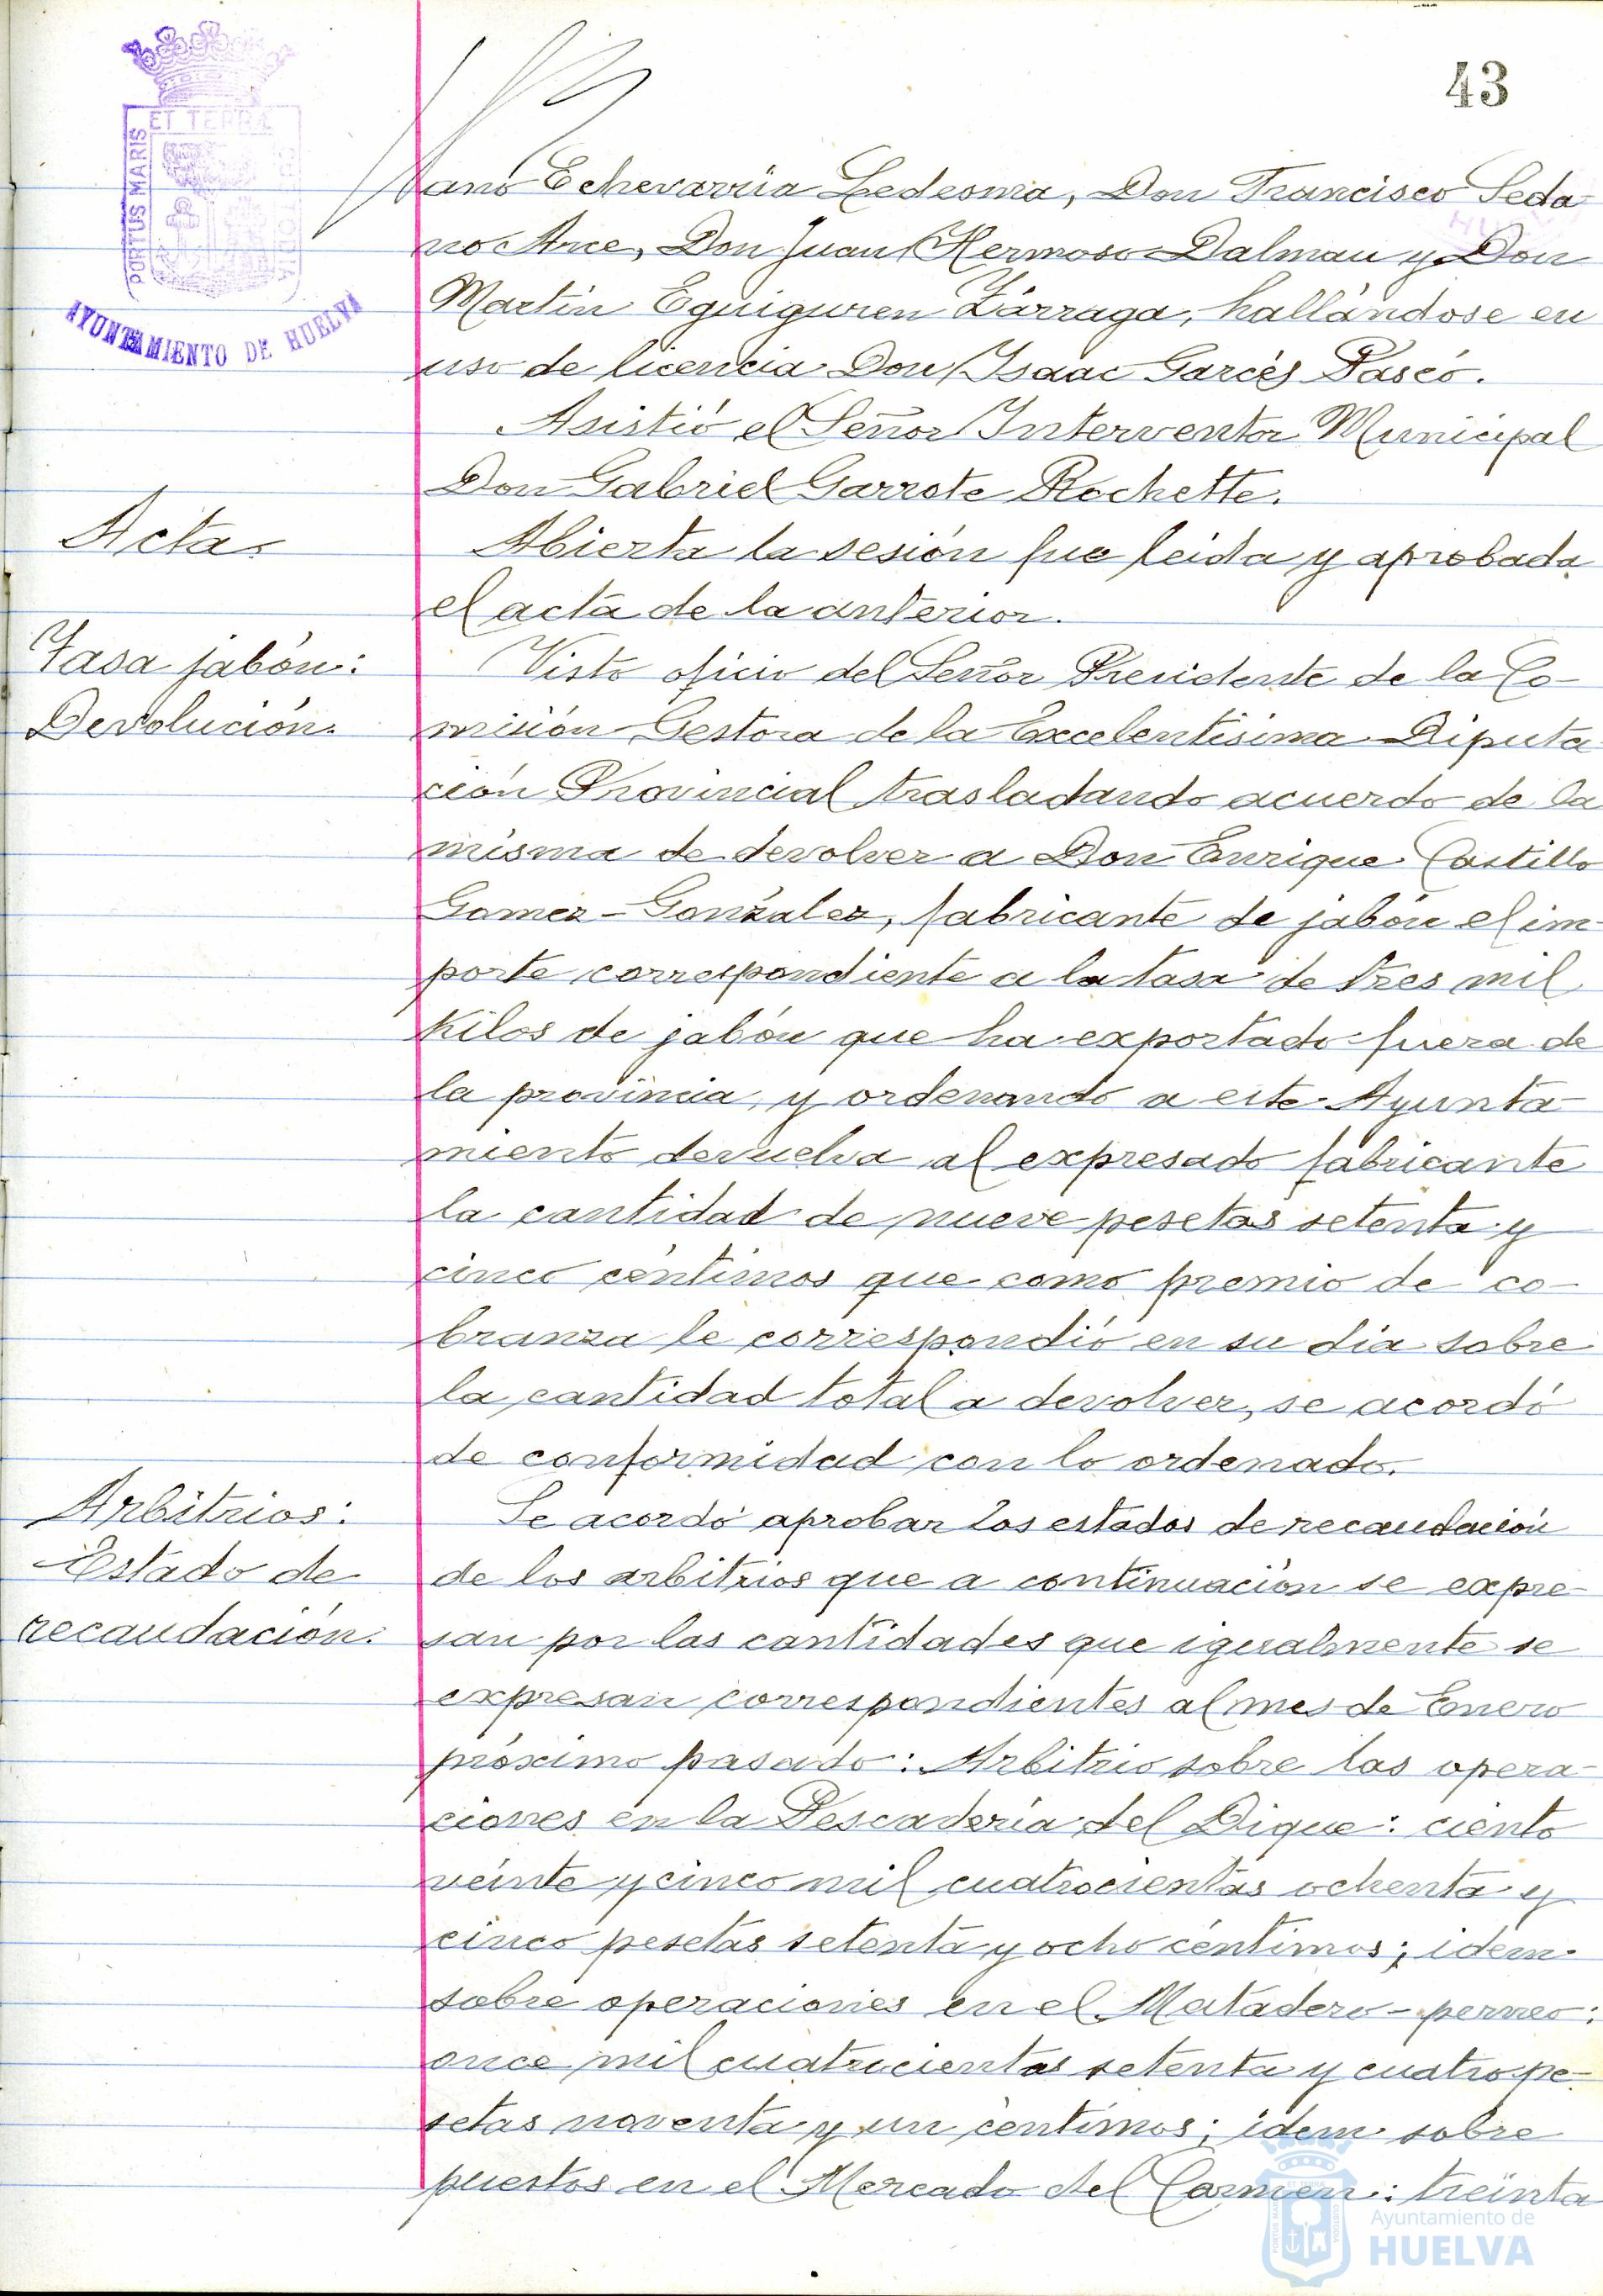 43
PORTUS MARIS
ET TERRÆ
CUSTODIA
AYUNTAMIENTO DE HUELVA
ano Echevarría Ledesma, Don Francisco Seda-
no Arce, Don Juan Hermoso Dalmau y Don
Martín Eguiguren Zárraga, hallándose en
uso de licencia Don Isaac Garcés Pascó.
Asistió el Señor Interventor Municipal
Don Gabriel Garrote Rochette.
Acta.
Abierta la sesión fue leida y aprobada
el acta de la anterior.
Tasa jabón:
Devolución.
Visto oficio del Señor Presidente de la Co-
misión Gestora de la Excelentísima Diputa-
ción Provincial trasladando acuerdo de la
misma de devolver a Don Enrique Castillo
Gomez-González, fabricante de jabón el im-
porte correspondiente a la tasa de tres mil
kilos de jabón que ha exportado fuera de
la provincia, y ordenando a este Ayunta-
miento devuelva al expresado fabricante
la cantidad de nueve pesetas setenta y
cinco céntimos que como premio de co-
branza le correspondió en su día sobre
la cantidad total a devolver, se acordó
de conformidad con lo ordenado.
Arbitrios:
Estado de
recaudación.
Se acordó aprobar los estados de recaudación
de los arbitrios que a continuación se expre-
san por las cantidades que igualmente se
expresan correspondientes al mes de Enero
próximo pasado: Arbitrio sobre las opera-
ciones en la Pescadería del Dique: ciento
veinte y cinco mil cuatrocientas ochenta y
cinco pesetas setenta y ocho céntimos; idem
sobre operaciones en el Matadero-perneo:
once mil cuatrocientas setenta y cuatro pe-
setas noventa y un céntimos; idem sobre
puestos en el Mercado del Carmen: treinta
Ayuntamiento de
HUELVA